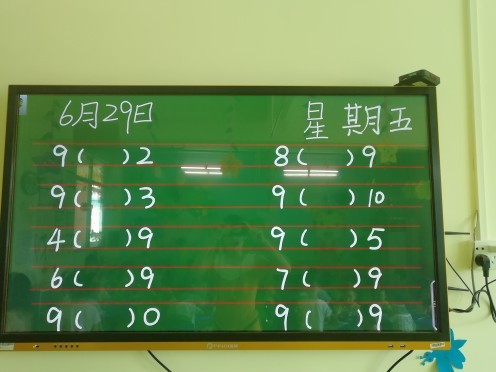 6月29日 星期五
9( )2 8( )9
9( )3 9( )10
4( )9 9( )5
6( )9 7( )9
9( )0 9( )9